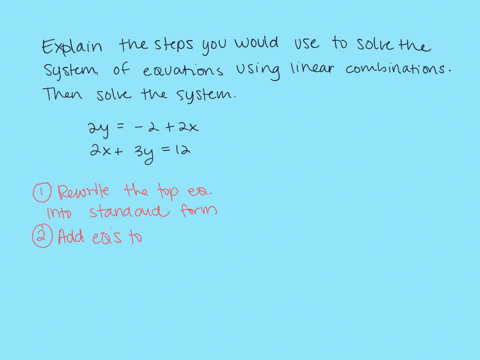 Explain the steps you would use to solve the
system of equations using linear combinations.
Then solve the system.
2y = -2 + 2x
2x + 3y = 12
① Rewrite the top eq.
into standard form
② Add eq's to